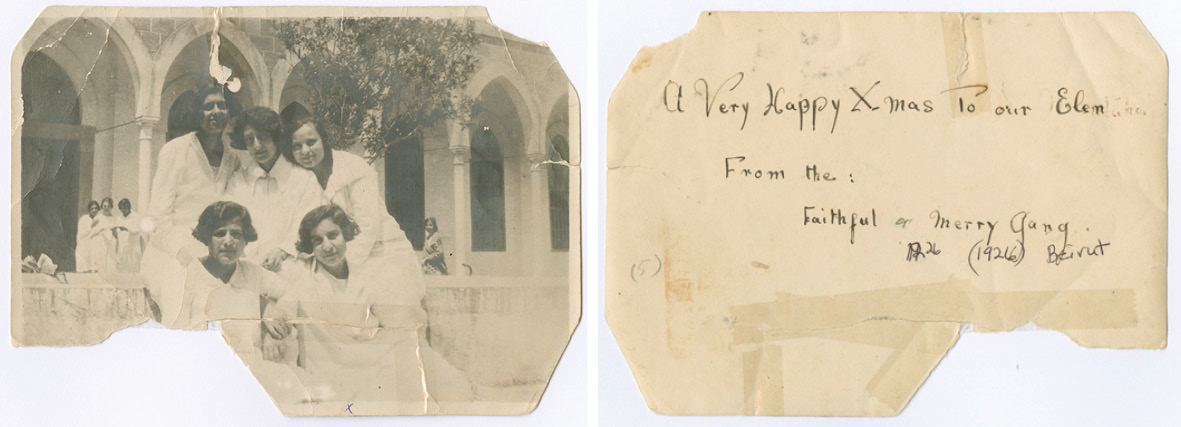 x
A Very Happy X mas To our Elem
From the:
Faithful & Merry Gang.
1926 (1926) Beirut
(5)